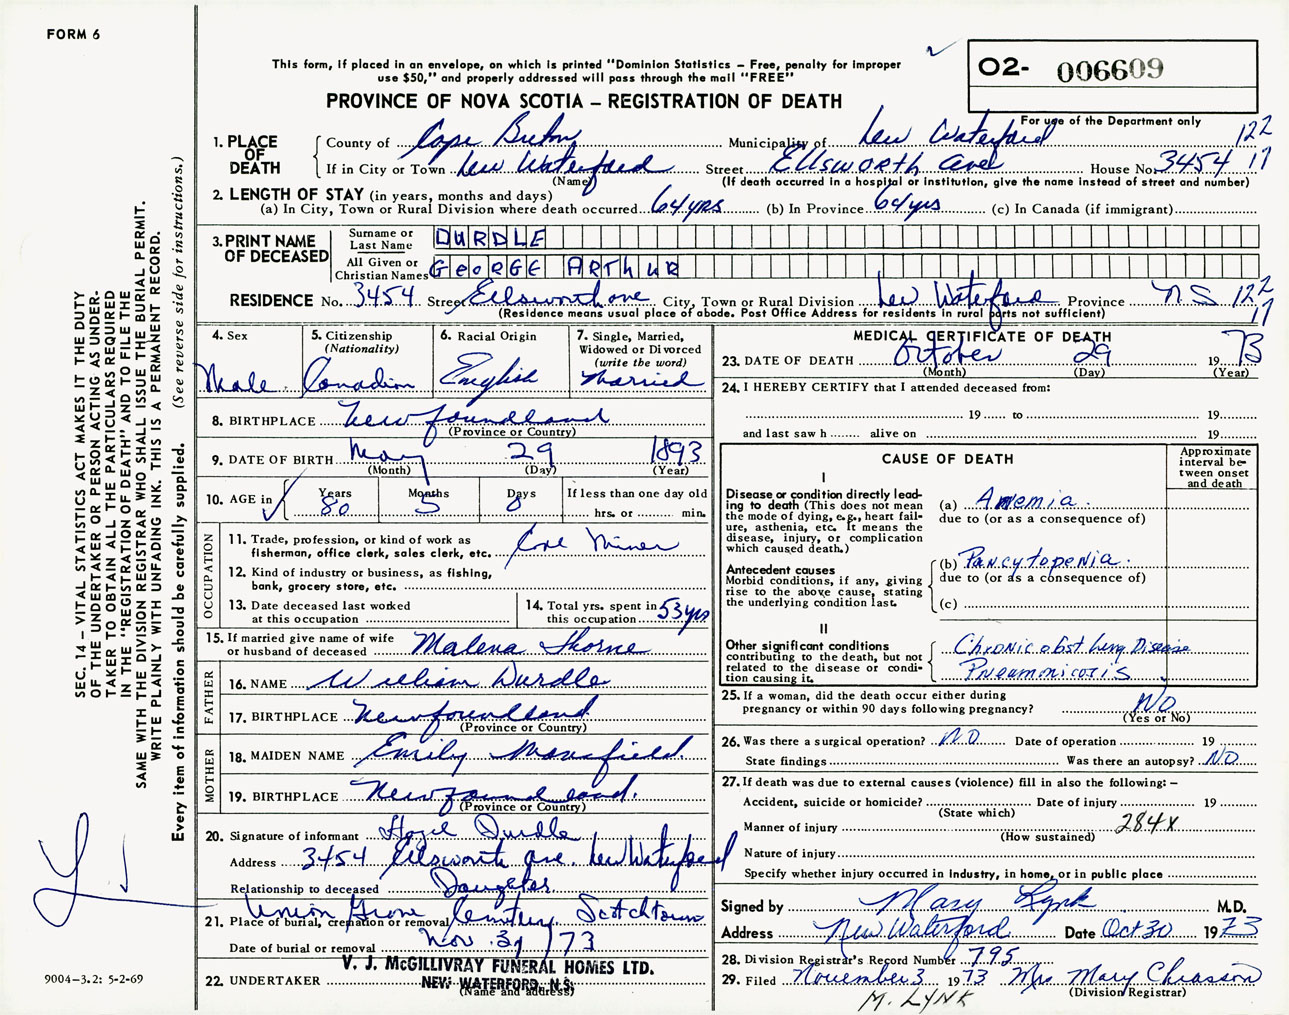 FORM 6
This form, if placed in an envelope, on which is printed "Dominion Statistics – Free, penalty for improper
use $50," and properly addressed will pass through the mail "FREE"
O2- 006609
For use of the Department only
PROVINCE OF NOVA SCOTIA – REGISTRATION OF DEATH
1. PLACE OF DEATH
County of Cape Breton Municipality of New Waterford 122
If in City or Town New Waterford Street Ellsworth Ave House No. 3454 17
(Name) (If death occurred in a hospital or institution, give the name instead of street and number)
2. LENGTH OF STAY (in years, months and days)
(a) In City, Town or Rural Division where death occurred 64 yrs (b) In Province 64 yrs (c) In Canada (if immigrant)
3. PRINT NAME OF DECEASED
Surname or Last Name DURDLE
All Given or Christian Names GeorGE ARThUR
RESIDENCE No. 3454 Street Ellsworth ave City, Town or Rural Division New Waterford Province N S 122
(Residence means usual place of abode. Post Office Address for residents in rural parts not sufficient) 17
4. Sex Male
5. Citizenship (Nationality) Canadian
6. Racial Origin English
7. Single, Married, Widowed or Divorced (write the word) Married
8. BIRTHPLACE Newfoundland
(Province or Country)
9. DATE OF BIRTH May 29 1893
(Month) (Day) (Year)
10. AGE in Years 80 Months 5 Days 0 If less than one day old
hrs. or min.
OCCUPATION
11. Trade, profession, or kind of work as
fisherman, office clerk, sales clerk, etc. Coal Miner
12. Kind of industry or business, as fishing,
bank, grocery store, etc.
13. Date deceased last worked
at this occupation
14. Total yrs. spent in
this occupation 53 yrs
15. If married give name of wife
or husband of deceased Malena Thorne
FATHER
16. NAME William Durdle
17. BIRTHPLACE Newfoundland
(Province or Country)
MOTHER
18. MAIDEN NAME Emily Mansfield
19. BIRTHPLACE Newfoundland.
(Province or Country)
20. Signature of informant Hazel Durdle
Address 3454 Ellsworth Ave. New Waterford
Relationship to deceased Daughter
21. Place of burial, cremation or removal Union Grove Cemetery, Scotchtown
Date of burial or removal Nov. 3, 73
22. UNDERTAKER V. J. McGILLIVRAY FUNERAL HOMES LTD.
NEW WATERFORD, N.S.
(Name and address)
MEDICAL CERTIFICATE OF DEATH
23. DATE OF DEATH October 29 1973
(Month) (Day) (Year)
24. I HEREBY CERTIFY that I attended deceased from:
19 to 19
and last saw h alive on 19
CAUSE OF DEATH
Approximate interval between onset and death
I
Disease or condition directly lead-
ing to death (This does not mean
the mode of dying, e.g., heart fail-
ure, asthenia, etc. It means the
disease, injury, or complication
which caused death.)
(a) Anemia.
due to (or as a consequence of)
Antecedent causes
Morbid conditions, if any, giving
rise to the above cause, stating
the underlying condition last.
(b) Pancytopenia.
due to (or as a consequence of)
(c)
II
Other significant conditions
contributing to the death, but not
related to the disease or condi-
tion causing it.
Chronic obst. lung Disease
Pneumnicotis
25. If a woman, did the death occur either during
pregnancy or within 90 days following pregnancy? NO
(Yes or No)
26. Was there a surgical operation? NO Date of operation 19
State findings Was there an autopsy? NO
27. If death was due to external causes (violence) fill in also the following: –
Accident, suicide or homicide? Date of injury 19
(State which)
Manner of injury 284X
(How sustained)
Nature of injury
Specify whether injury occurred in industry, in home, or in public place
Signed by Mary Lynk M.D.
Address New Waterford Date Oct 30 1973
28. Division Registrar's Record Number 795
29. Filed November 3 1973 Mrs Mary Chiasson
(Division Registrar)
M. LYNK
SEC. 14 – VITAL STATISTICS ACT MAKES IT THE DUTY
OF THE UNDERTAKER OR PERSON ACTING AS UNDER-
TAKER TO OBTAIN ALL THE PARTICULARS REQUIRED
IN THE "REGISTRATION OF DEATH" AND TO FILE THE
SAME WITH THE DIVISION REGISTRAR WHO SHALL ISSUE THE BURIAL PERMIT.
WRITE PLAINLY WITH UNFADING INK. THIS IS A PERMANENT RECORD.
Every item of information should be carefully supplied. (See reverse side for instructions.)
9004–3.2: 5-2-69